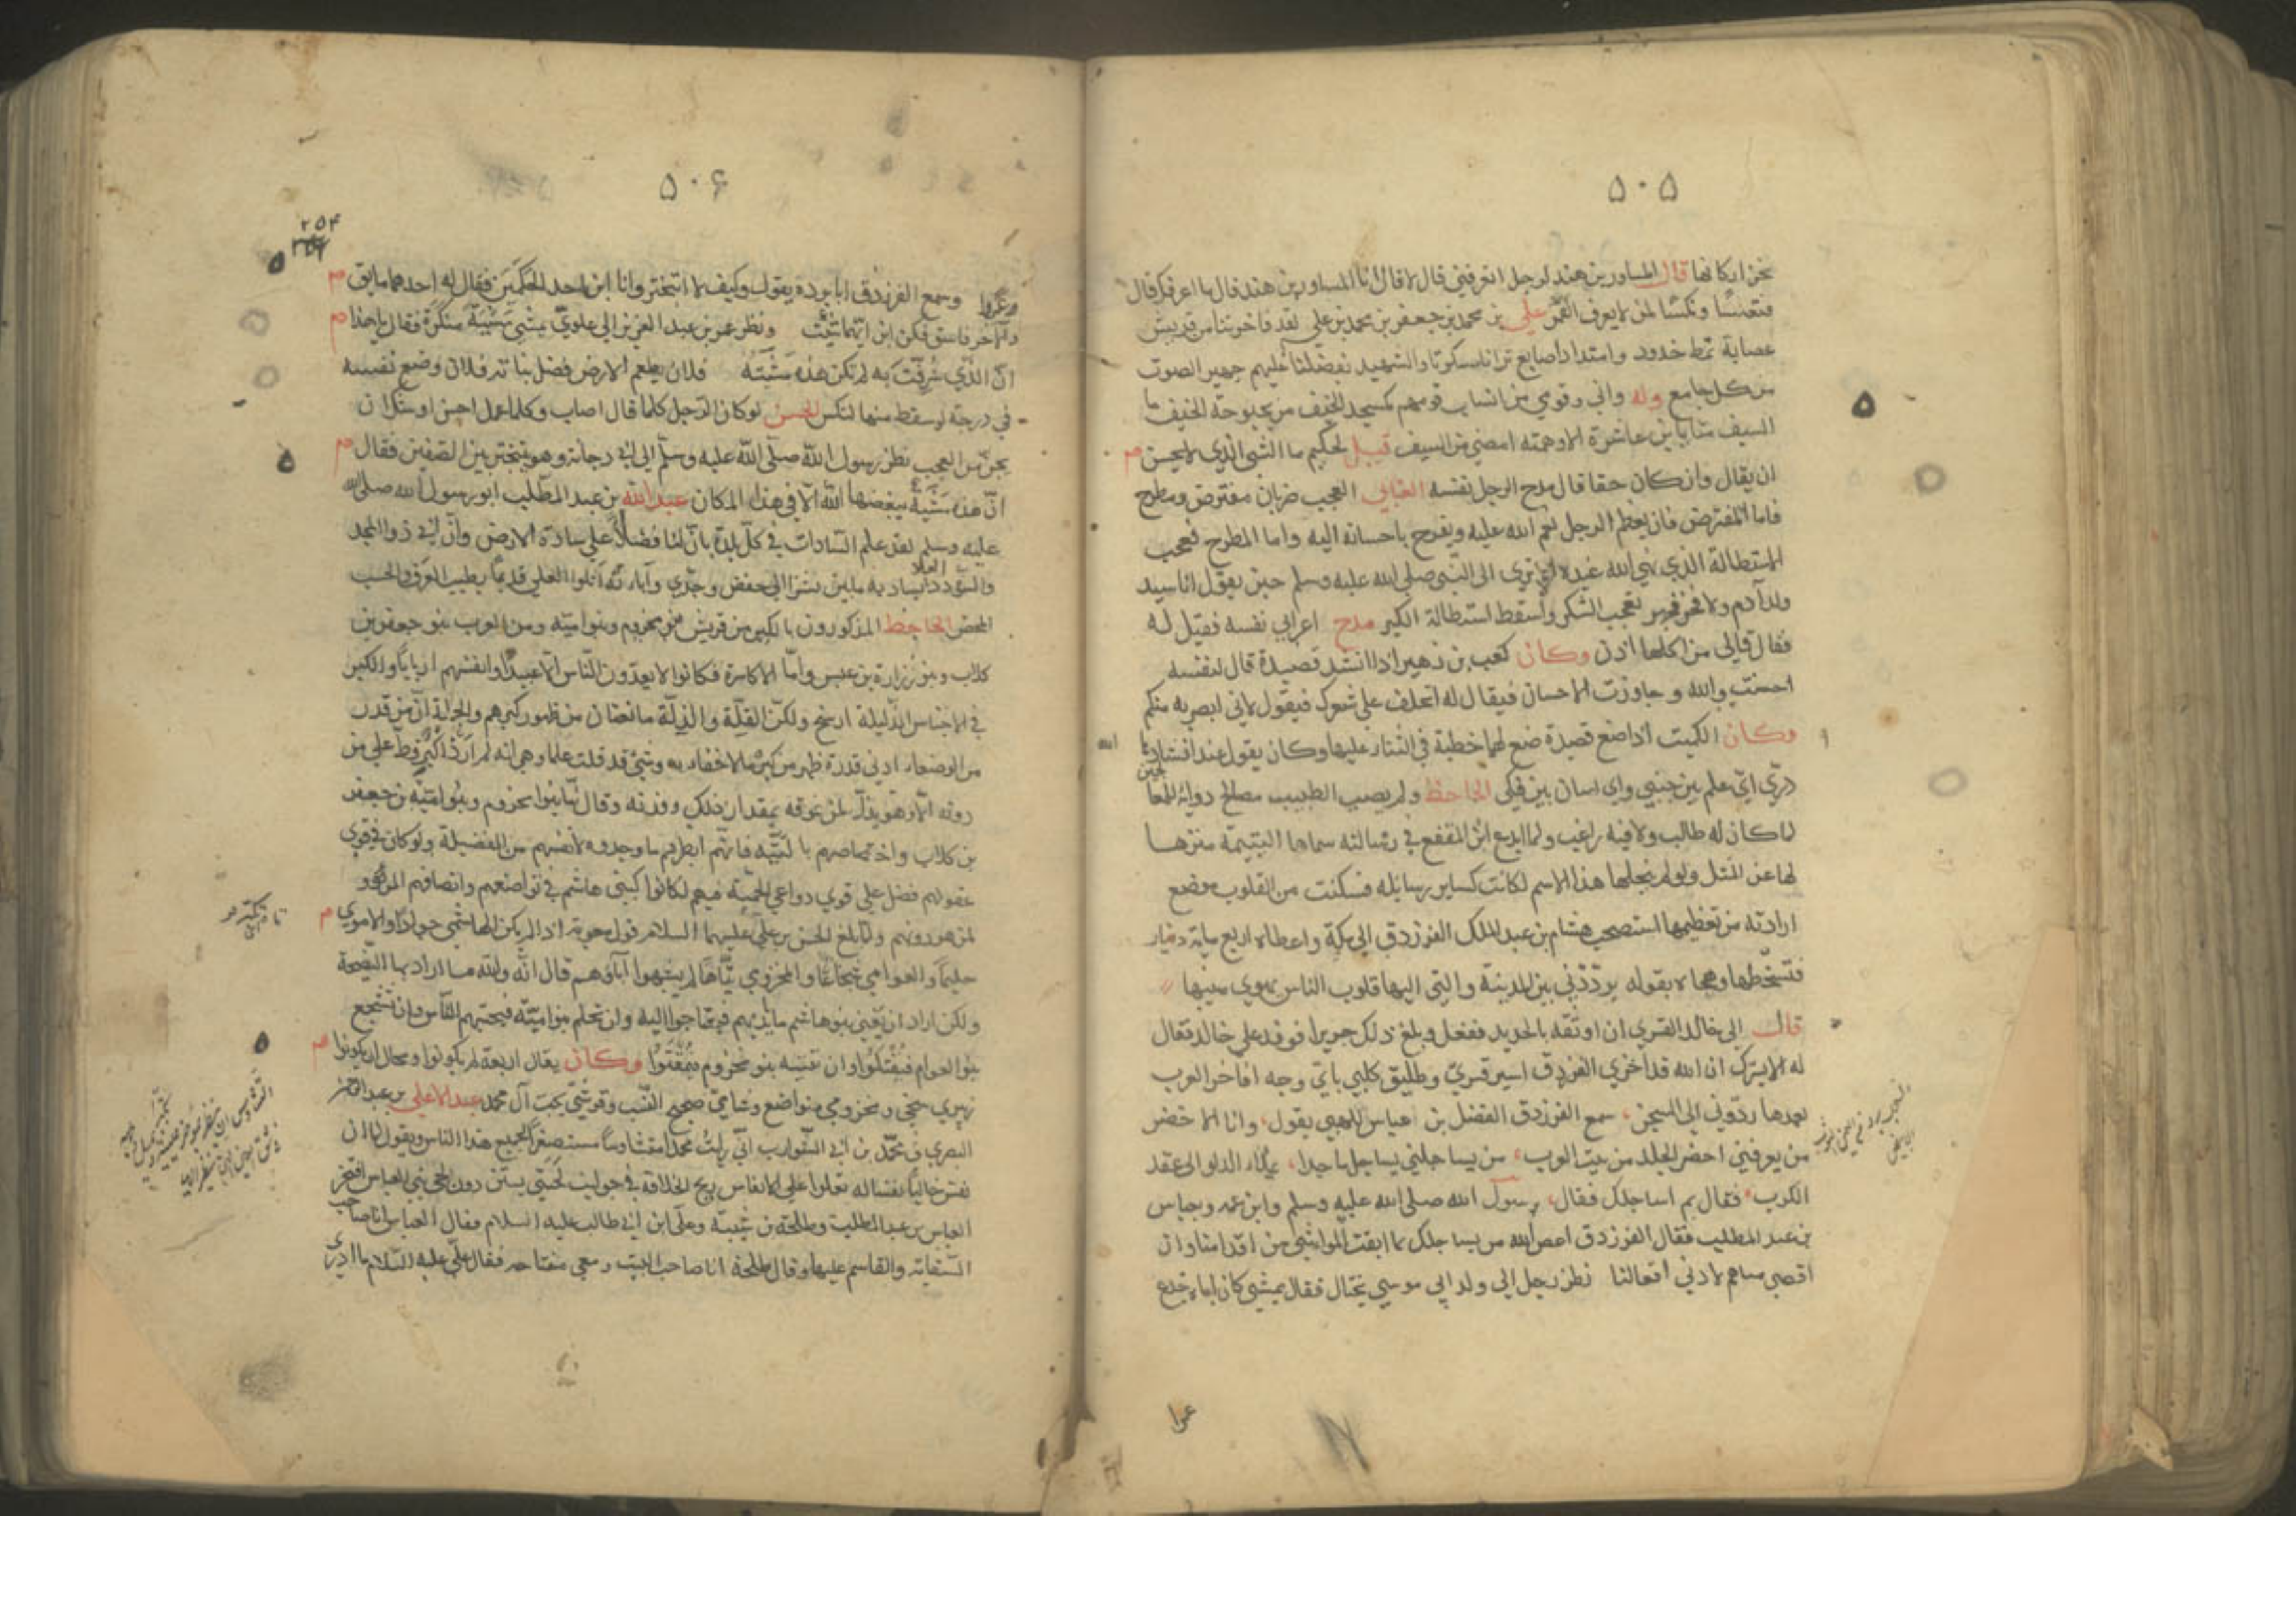 ٥٠٥
قال المساور بن هند لرجل اتعرفني قال لا قال انا المساور بن هند قال ما اعرفك قال
فتعسًا ونكسًا لمن لا يعرف القمر علي بن محمد بن جعفر بن محمد بن علي لقد فاخرتنا من قريش
عصابة بمط خدود وامتداد اصابع ترانا سكوتا والشهيد بفضلنا عليهم جهير الصوت
من كل جامع وله واني وقومي من انساب قومهم كمسجد الخيف من بحبوحة الخيف ما
السيف منا يابن عاشرة الا وهمته امضى من السيف قيل لحكيم ما الشي الذي لا يحسن
ان يقال وان كان حقا قال مدح الرجل نفسه العجب ضربان مفترض ومطرح
فاما المفترض فان يعظم الرجل نعم الله عليه ويفرح باحسانه اليه واما المطرح فعجب
الاستطالة الذي نهى الله عنه الا ترى الى النبي صلى الله عليه وسلم حين يقول انا سيد
ولد آدم ولا فخر بعجب الشكر واسقط استطالة الكبر مدح اعرابي نفسه فقيل له
فقال الى من اكلها اذن وكان كعب بن زهير اذا انشد قصيدة قال لنفسه
احسنت والله وجاوزت الاحسان فيقال له اتحلف على شعرك فيقول لاني ابصر به منكم
وكان الكميت اذا صنع قصيدة صنع لها خطبة في الثناء عليها وكان يقول عند انشادها لله
درّي ايّ علم بين جنبي واي لسان بين فكي الجاحظ ولم يصب الطبيب مصالح دوائه للمعالجين
لما كان له طالب ولا فيه راغب ولما ابدع ابن المقفع في رسالته سماها اليتيمة تنزها
لها عن المثل ولو لم ينحلها هذا الاسم لكانت كساير رسايله فسكنت من القلوب موضع
ارادته من تعظيمها استصحب هشام بن عبد الملك الفرزدق الى مكة واعطاه اربع ماية دينار
فتسخطها وهجاه بقوله يردّدني بين المدينة والتي اليها قلوب الناس يهوي منيبها
قال الى خالد القسري ان اوثقه بالحديد ففعل وبلغ ذلك جريرا فوفد على خالد فقال
له الا يسرك ان الله قد اخزى الفرزدق اسير قسري وطليق كلبي باي وجه افاخر العرب
بعدها ردّوني الى السجن، سمع الفرزدق الفضل بن عباس اللهبي يقول، وانا الاخضر
من يعرفني اخضر الجلد من بيت العرب، من يساجلني يساجل ماجدا، يملأ الدلو الى عقد
الكرب، فقال بم اساجلك فقال، رسول الله صلى الله عليه وسلم وابن عمه وبعباس
بن عبد المطلب فقال الفرزدق اعض الله من يساجلك بما ابقت المواسي من
اقصى لادنى افعالنا نظر رجل الى ولد ابي موسى يختال فقال يمشي كان اباه خدع
عمرا
٥٠۶
٢٥٤
عمرا وسمع الفرزدق ابا بردة يقول وكيف لا اتبختر وانا ابن احد الحكمين فقال له احدهما مايق
والآخر فاسق فكن ابن ايهما شئت ونظر عمر بن عبد العزيز الى علويّ يمشي مشية منكرة فقال يا هذا
انّ الذي شرفت به لم تكن هذه مشيته فلان يطعم الارض فضل ثيابه فلان وضع نفسه
في درجة لو سقط منها لتكسر الحسن لو كان الرجل كلما قال اصاب وكلما عمل احسن اوشك ان
يجنّ من العجب نظر رسول الله صلى الله عليه وسلم الى ابي دجانة وهو يتبختر بين الصفين فقال
انّ هذه مشية يبغضها الله الا في هذا المكان عبد الله بن عبد المطلب ابو رسول الله صلى الله
عليه وسلم لقد علم السادات في كل بلدة بان لنا فضلًا على سادة الارض وان ابي ذو المجد
والسؤدد يساد به ما بين نشز الى خفض وجدّي وآباء له اثلوا العلى قديمًا بطيب العرق والحسب
المحض الجاحظ المذكورون بالكبر من قريش بنو مخزوم وبنو اميّة ومن العرب بنو جعفر بن
كلاب وبنو زرارة بن عدس وامّا الاكاسرة فكانوا لا يعدّون الناس الا عبيدًا وانفسهم اربابًا والكبر
في الاجناس الذليلة ارسخ ولكنّ القلّة والذلّة مانعتان من ظهور كبرهم والجملة انّ من قدر
من الوضعاء ادنى قدرة ظهر من كبره ما لا خفاء به وشيء قد قلت علما وهي انه لم ار ذا كبر قط على من
دونه الا وهو يذلّ لمن فوقه بمقدار ذلك ووزنه وقال امّا بنو مخزوم وبنو اميّة بن جعفر
بن كلاب واختصاصهم بالتيه فانهم ابطرهم ما وجدوه لانفسهم من الفضيلة ولو كان في قوى
عقولهم فضل على قوى دواعي الحميّة فيهم لكانوا كبني هاشم في تواضعهم وانصافهم
لمن هو دونهم ولما بلغ الحسن بن علي عليهما السلام قول معوية اذا لم يكن الهاشمي جوادًا والاموي
حليمًا والعوامي شجاعًا والمخزومي تيّاهًا لم يشبهوا آباءهم قال انه والله ما اراد بها النصيحة
ولكن اراد ان يفني بنو هاشم ما بايديهم فيحتاجوا اليه وان تحلم بنو اميّة فيحبّهم الناس وان تشجع
بنو العوام فيقتلوا وان تتيه بنو مخزوم فيمقتوا وكان يقال اربعة لم يكونوا ومحال ان يكونوا
زبيري سخي ومخزومي متواضع وشامي صحيح النسب وقرشيّ يحب آل محمد عبد الاعلى بن عبد الله
البصري في محمد بن ابي الشوارب اني رايت محمدا متشاوسًا مستصغرًا لجميع هذا الناس ويقول لما ان
تنفس خاليًا بفساله تعلو على الانفاس ريح الخلافة في جوانب لحيتي يستن دون لحى بني العباس افتخر
العباس بن عبد المطلب وطلحة بن شيبة وعلى ابن ابي طالب عليه السلام فقال العباس انا صاحب
السقاية والقاسم عليها وقال طلحة انا صاحب البيت ومعي مفتاحه فقال عليّ عليه السلام ما ادري